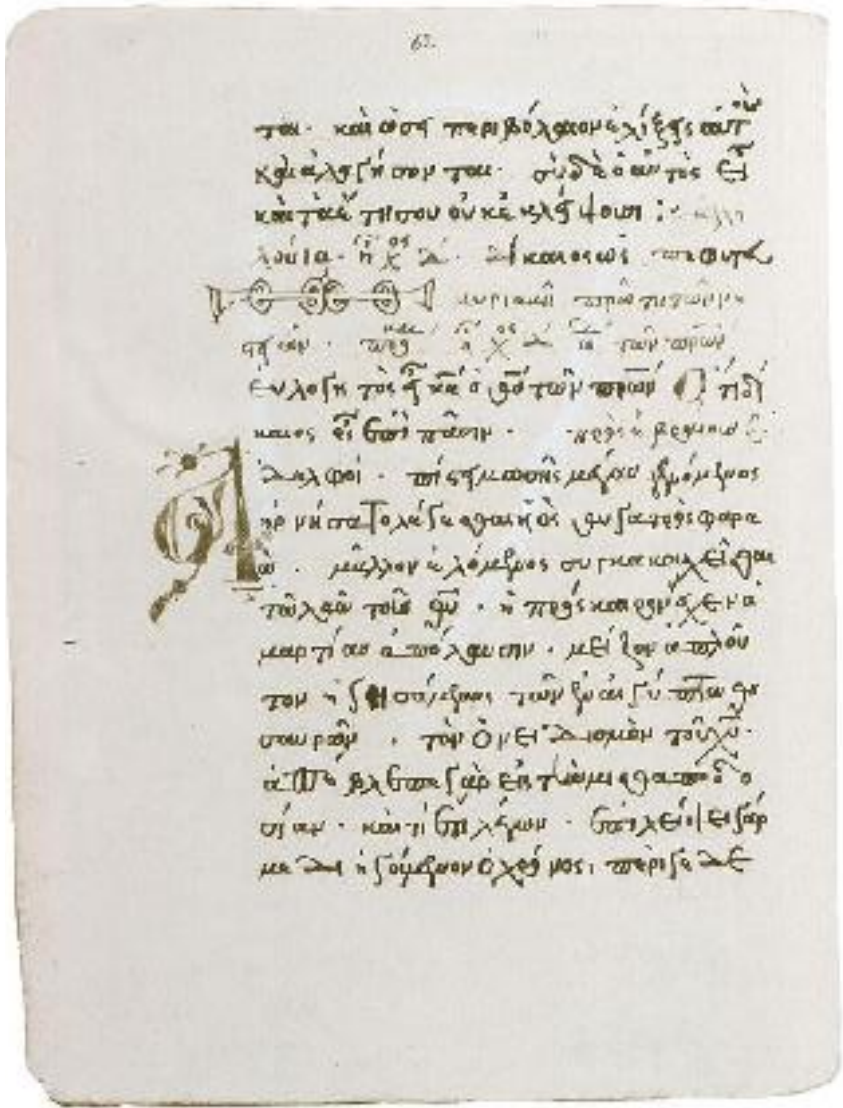 62
ται· καὶ ὡσεὶ περιβόλαιον ἑλίξεις αὐτοὺς
καὶ ἀλλαγήσονται· σὺ δὲ ὁ αὐτὸς εἶ
καὶ τὰ ἔτη σου οὐκ ἐκλείψουσι: ἀλλη
λούια· ἦχος δ· Δίκαιος ὡς
κυριακῆ πρώτη τῶν νη
στειῶν· ἦχος δ τῶν πρων
Εὐλογητὸς εἶ κε ὁ θς τῶν πρων Ὅτι δί
καιος εἶ ἐπὶ πᾶσιν· πρὸς ἑβραίους
Ἀδελφοί· πίστει μωσῆς μέγας γενόμενος
ἠρνήσατο λέγεσθαι υἱὸς θυγατρὸς φαρα
ώ· μᾶλλον ἑλόμενος συγκακουχεῖσθαι
τῶ λαῶ τοῦ θυ· ἢ πρόσκαιρον ἔχειν ἁ
μαρτίας ἀπόλαυσιν· μείζονα πλοῦ
τον ἡγησάμενος τῶν ἐν αἰγύπτω θη
σαυρῶν· τὸν ὀνειδισμὸν τοῦ χυ·
ἀπέβλεπε γὰρ εἰς τὴν μισθαποδο
σίαν· καὶ τί ἔτι λέγων· ἐπιλείψει γάρ
με διηγούμενον ὁ χρόνος, περὶ γεδε